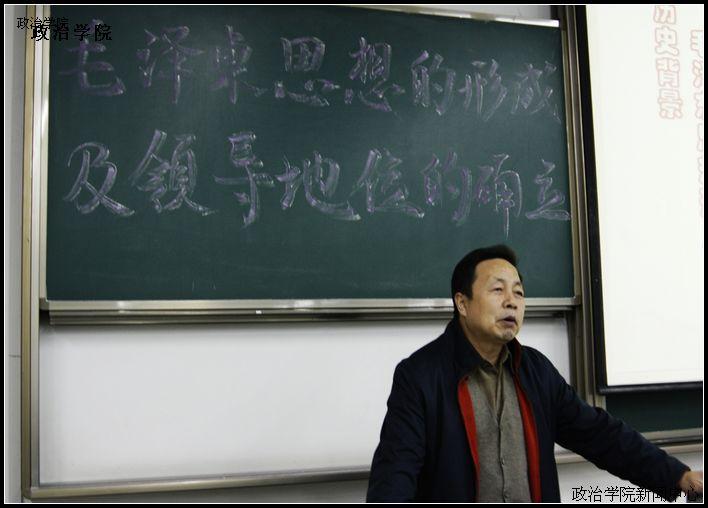 政治学院
政治学院
毛泽东思想的形成
及領导地位的确立
历史背景
政治学院新闻中心